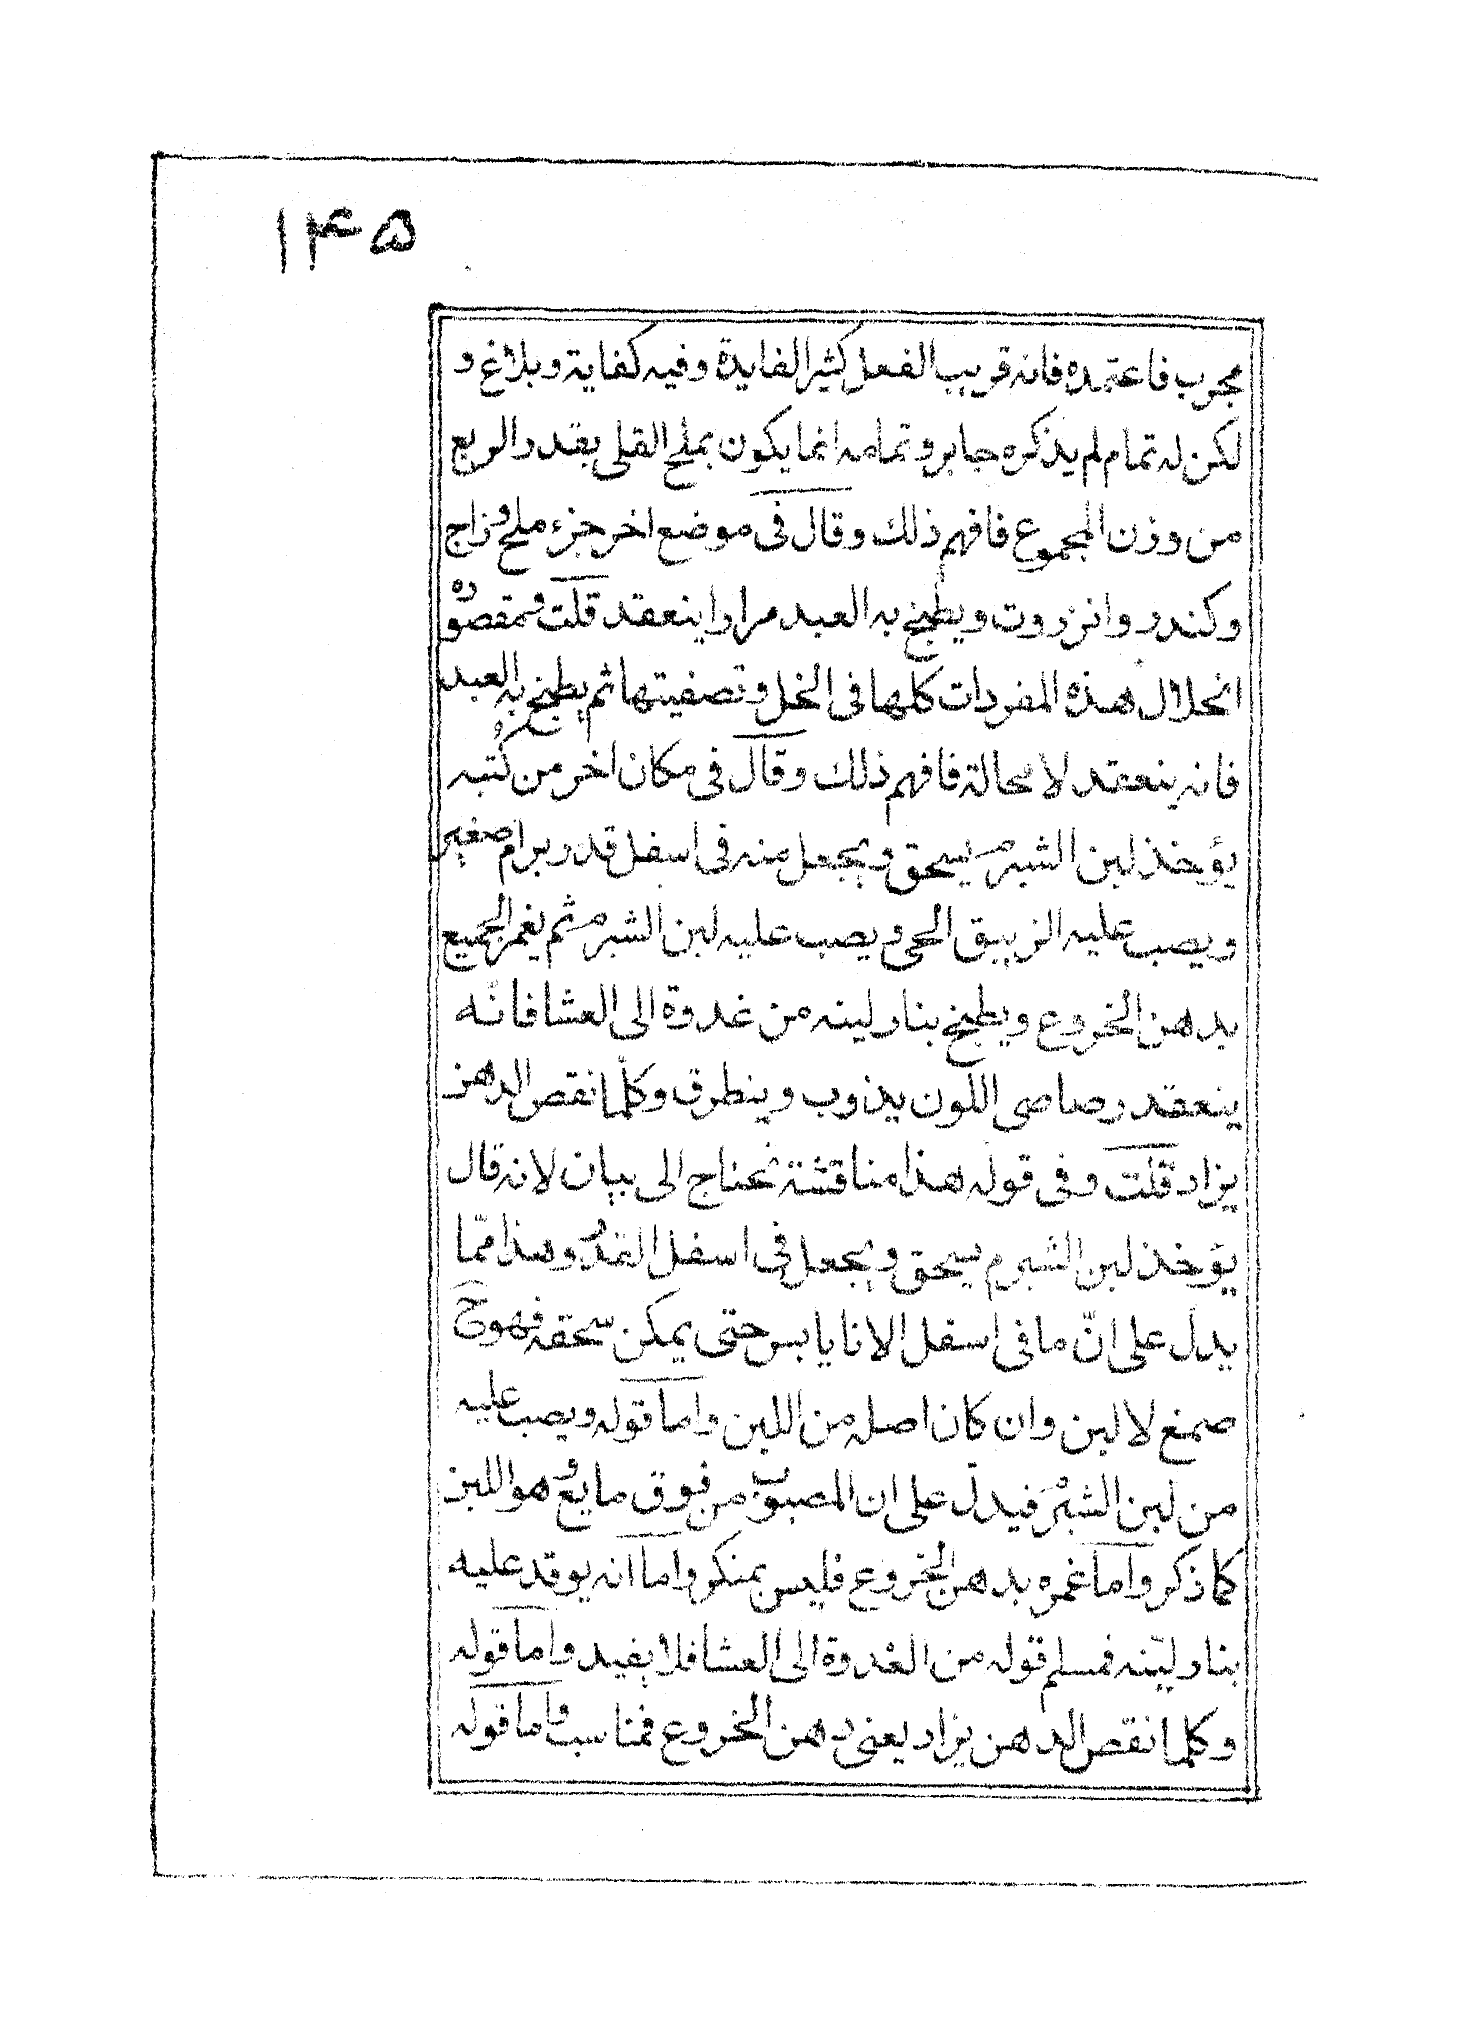 ۱۴۵
مجرب فاعتمده فانه قريب الفعل كثير الفايدة وفيه كفاية وبلاغ و
لكن له تمام لم يذكره جابر وتمامه انما يكون بملح القلى بقدر الربع
من وزن المجموع فافهم ذلك وقال فى موضع اخر جزء ملح وزاج
وكندر وانزروت ويطبخ به العبد مرارا ينعقد قلت ومقصوده
انحلال هذه المفردات كلها فى الخل وتصفيتها ثم يطبخ به العبد
فانه ينعقد لا محالة فافهم ذلك وقال فى مكان اخر من كتبه
يؤخذ لبن الشبرم يسحق ويجعل منه فى اسفل قدر برام صغير
ويصب عليه الزيبق الحى ويصب عليه لبن الشبرم ثم يغمر الجميع
بدهن الخروع ويطبخ بنار لينه من غدوة الى العشا فانّه
ينعقد رصاصى اللون يذوب وينطرق وكلّما نقص الدهن
يزاد قلت وفى قوله هذا مناقشة تحتاج الى بيان لانه قال
يؤخذ لبن الشبرم يسحق ويجعل فى اسفل القدر وهذا ممّا
يدل على انّ ما فى اسفل الانا يابس حتى يمكن سحقه فهو ح
صمغ لا لبن وان كان اصله من اللبن واما قوله ويصب عليه
من لبن الشبرم فيدلّ على ان المصبوب من فوق مايع وهو اللبن
كما ذكر واما غمره بدهن الخروع فليس بمنكر واما انه يوقد عليه
بنار ليّنه فمسلم قوله من الغدوة الى العشا فلا يفيد واما قوله
وكلما نقص الدهن يزاد يعنى دهن الخروع فمناسب واما قوله